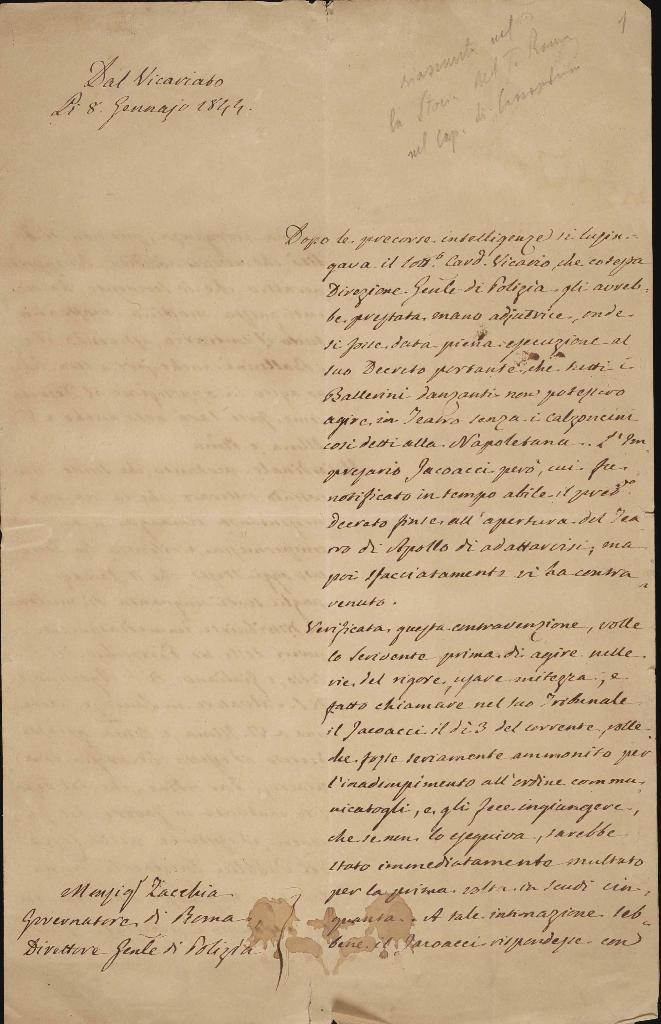 1
nel
la Stor. del T. Roma
nel cap. di
Dal Vicariato
Li 8. Gennajo 1844.
Dopo le precorse intelligenze si lusin-
gava il sott.o Card. Vicario, che cotesta
Direzione Gēnle di Polizia gli avreb-
be prestata mano adjutrice, onde
si fosse data piena esecuzione al
suo Decreto portante, che tutti i
Ballerini danzanti non potessero
agire in Teatro senza i calzoncini
così detti alla Napoletana. L'Im
presario Jacoacci però, cui fu
notificato in tempo abile il pred.o
decreto finse all'apertura del Tea
tro di Apollo di adattarvisi, ma
poi sfacciatamente vi ha contra
venuto.
Verificata questa contravenzione, volle
lo scrivente prima di agire nelle
vie del rigore, usare mitezza, e
fatto chiamare nel suo Tribunale
il Jacoacci il dì 3 del corrente, volle
che fosse seriamente ammonito per
l'inadempimento all'ordine commu
nicatogli, e gli fece ingiungere,
che se non lo eseguiva, sarebbe
stato immediatamente multato
per la prima volta in scudi cin
quanta. A tale intimazione seb-
bene il Jacoacci rispondesse con
Monsig.r Zacchia
Governatore di Roma
Direttore Gēnle di Polizia